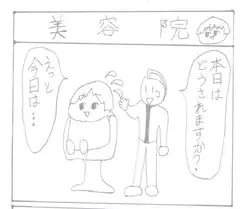 美容院
本日は
どうされますか?
えっと
今日は…